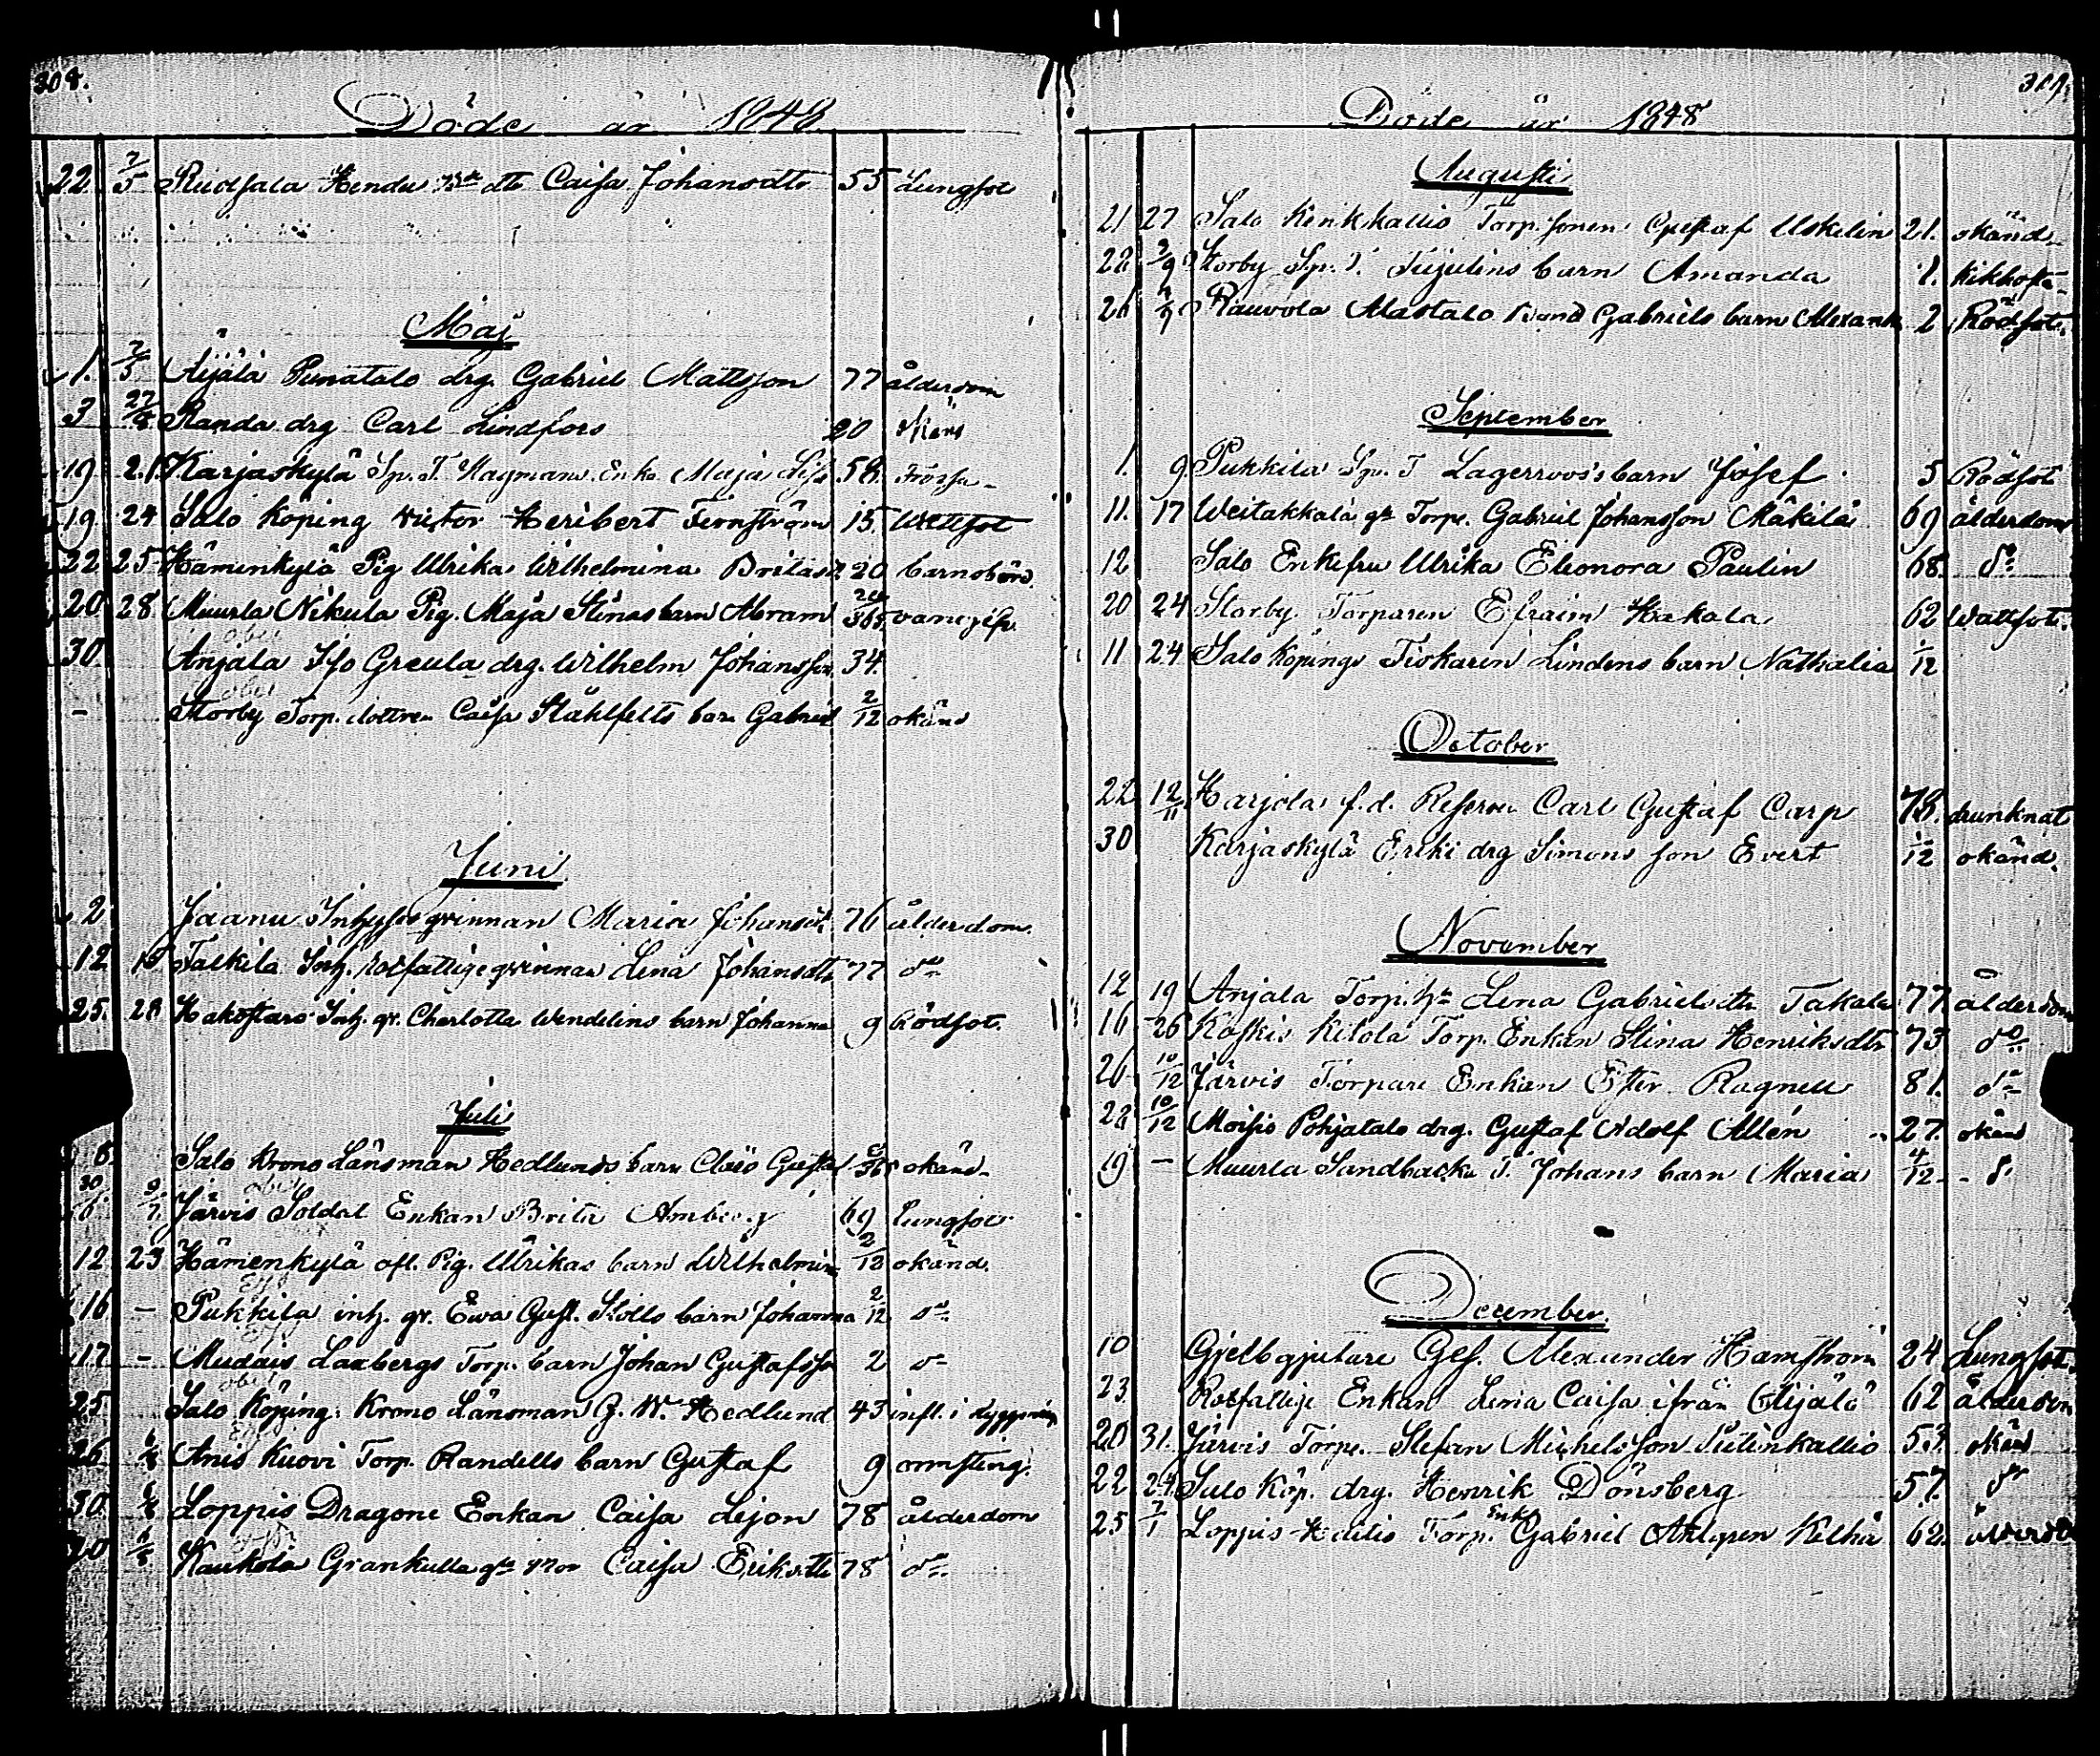 308.
Döde år 1848
22 7/5 Ruotsala Hendu dtr Caisa Johansdtr 55 Lungsot
Maj
1. 7/5 Äijälä Punatalo drg. Gabriel Mattsson 77 ålderdom
3 27/8 Randa drg Carl Lindfors 20 okänd
19 21 Karjaskylä Sp. T. Hagmans Enka Maja Lisa 58. Frossa
19 24 Salo Köping Victor Heribert Fernström 15. Wattsot
22 25 Hämenkylä Pig Ulrika Wilhelmina 20 barnsbörd.
20 28 Muurla Nikula Pig. Maja Stinas barn Abram 24/365 vanrygt
30 Anjala Iso Greula drg. Wilhelm Johansson 34.
- Storby Torp. dottren Caisa Ståhlfelts barn Gabriel 2/12 okänd
Juni
2 Jaanu Inhyses qvinnan Maria Johansdtr 76 ålderdom.
12 Talkila Inh. rotfattige qvinnan Lena Johansdtr 77 do
25. 28 Kakoskaro Inh. qv. Charlotta Wendelins barn Johanna 9 Rödsot.
Juli
6. Salo Krono Länsman Hedlunds barn Claes Gustaf /365 okänd
6 9/7 Järvis Soldat Enkan Brita Amberg 69 Lungsot
12 23 Hämenkylä afl. Pig. Ulrikas barn Wilhelmina 2/12 okänd.
16 - Pukkila inh. qv. Ewa Gust. Skolls barn Johanna 2/12 do
17 - Mudais Laxbergs Torp. barn Johan Gustafsson 2 do
25 Salo Köping Krono Länsman G. W. Hedlund 43 infl. i ryggmärg
26 6/8 Anis Kuovi Torp. Randells barn Gustaf 9 ormsting.
30. 6/8 Loppis Dragone Enkan Caisa Lejon 78 ålderdom
30 6/8 Kaukola Grankulla gla mor Caisa Eriksdtr 78 do
Döde år 1848
Augusti
21 27 Salo Kerikkallio Torp. sonen Gustaf Uskelin 21. okänd
22 3/9 Storby Sp. T. Tujulins barn Amanda 1. Kikhosta
26 Rauvola Alastalo Bond Gabriels barn Alexand. 2 Rödsot.
September
1. 9. Pukkila Sp. T Lagerroos's barn Josef 5 Rödsot
11. 17 Weitakkala gle Torp. Gabriel Johansson Mäkilä 69 ålderdom
12 Salo Enkefru Ulrika Eleonora Paulin 68. do
20 24 Storby Torparen Efraim Hakala 62 Wattsot.
11 24 Salo Köpings Fiskaren Lindens barn Nathalia 1/12
October
22 12/11 Karjola f.d. Reserv. Carl Gustaf Carp 78. drunknat
30 Karjaskylä Eriki drg Simons son Evert 1/12 okänd.
November
12 19 Anjala Torp. h. Lena Gabrielsdtr Takala 77 ålderdom
16 26 Koskis Kilola Torp. Enkan Stina Henriksdtr 73 do
26 10/12 Järvis Torpare Enkan Ester Ragnell 81. do
28 10/12 Moisio Pohjatalo drg. Gustaf Adolf Allén 27. okänd
19 - Muurla Sandbacka T. Johans barn Maria 4/12 - do
December
10 Gjelbgjutare Ges. Alexander Hamström 24 Lungsot.
23. Rotfattige Enkan Lena Caisa ifrån Äijälä 62 ålderdom
20 31. Järvis Torp. Stefan Michelsson Pitinkallio 53 okänd
22 24. Salo Köp. drg. Henrik Dönsberg 57. do
25 7/1 Loppis Torp. Enk. Gabriel Ahlgren 62. ålderdom